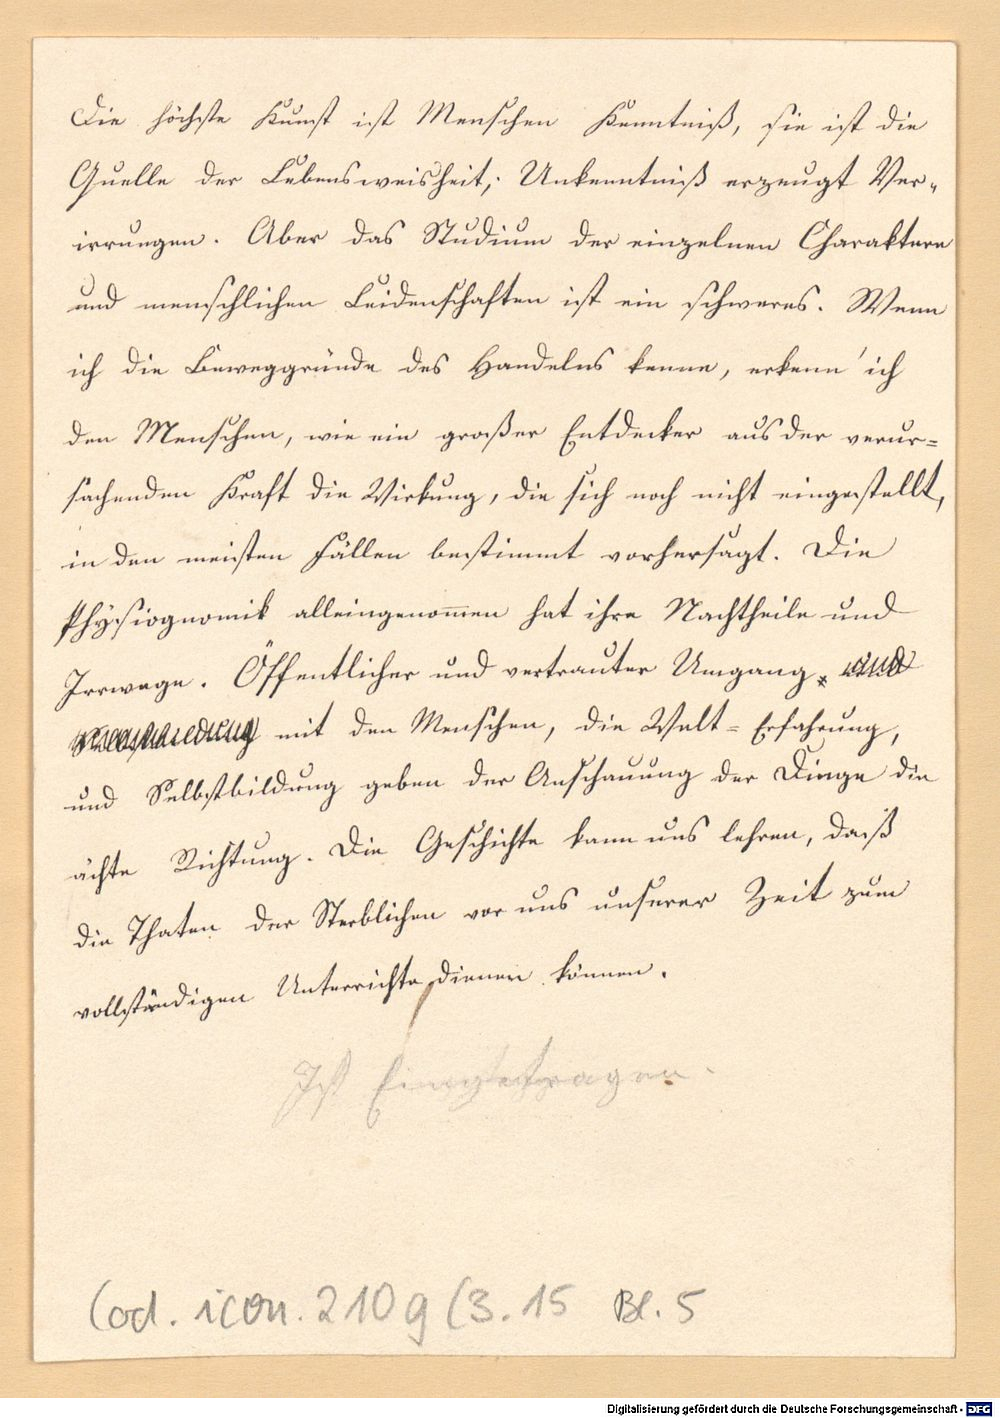 Die höchste Kunst ist Menschen Kenntniß, sie ist die
Quelle der Lebensweisheit; Unkenntniß erzeugt Ver-
irrungen. Aber das Studium der einzelnen Charaktere
und menschlichen Leidenschaften ist ein schweres. Wenn
ich die Beweggründe des Handelns kenne, erkenn' ich
den Menschen, wie ein großer Entdecker aus der verur=
sachenden Kraft die Wirkung, die sich noch nicht eingestellt,
in den meisten Fällen bestimmt vorhersagt. Die
Physiognomik alleingenom̅en hat ihre Nachtheile und
Irrwege. Öffentlicher und vertrauter Umgang und
mit den Menschen, die Welt=Erfahrung,
und Selbstbildung geben der Anschauung der Dinge die
ächte Richtung. Die Geschichte kann uns lehren, daß
die Thaten der Sterblichen vor uns unserer Zeit zum
vollständigen Unterrichte dienen können.
Ist Eingetragen.
Cod. icon. 210g (3. 15 Bl. 5
Digitalisierung gefördert durch die Deutsche Forschungsgemeinschaft - DFG